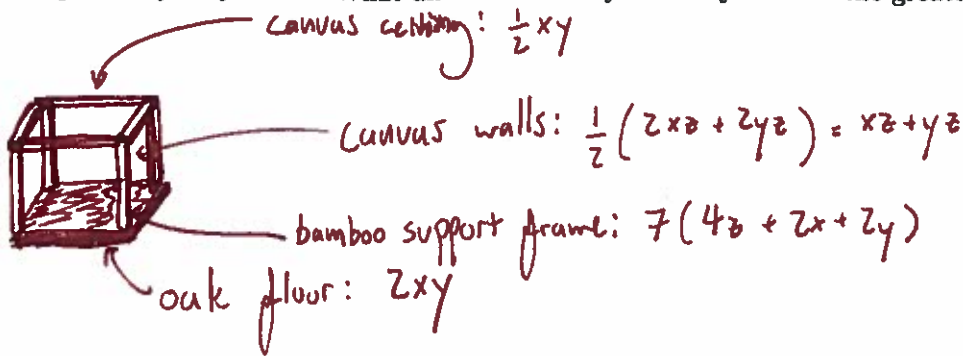 canvas ceiling: 1/2 xy
canvas walls: 1/2 (2xz + 2yz) = xz + yz
bamboo support frame: 7(4z + 2x + 2y)
oak floor: 2xy